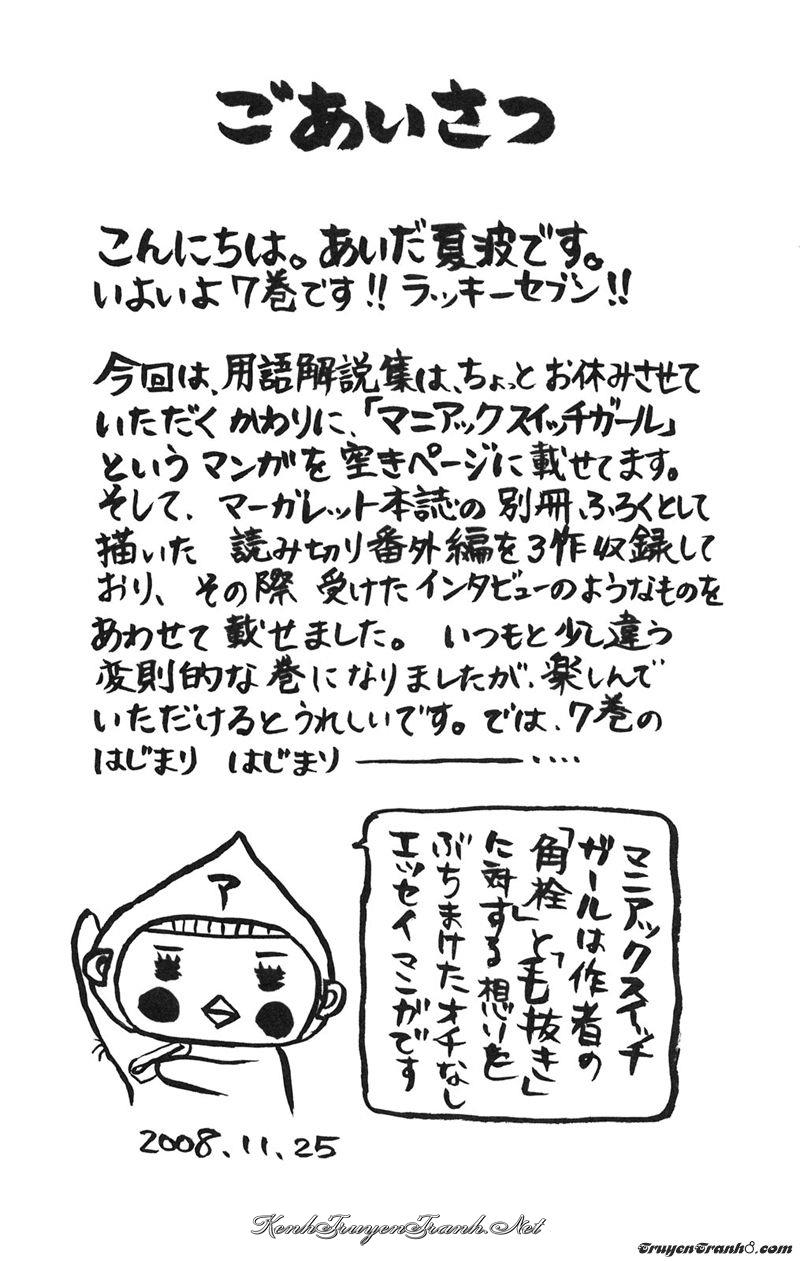 ごあいさつ
こんにちは。あいだ夏波です。
いよいよ7巻です!! ラッキーセブン!!
今回は、用語解説集は、ちょっとお休みさせて
いただくかわりに、「マニアックスイッチガール」
というマンガを空きページに載せてます。
そして、マーガレット本誌の別冊ふろくとして
描いた 読み切り番外編を3作収録して
おり、その際 受けたインタビューのようなものを
あわせて載せました。 いつもと少し違う
変則的な巻になりましたが、楽しんで
いただけるとうれしいです。では、7巻の
はじまり はじまり――――‥‥
マニアックスイッチ
ガールは作者の
「角栓」と「毛抜き」
に対する想いを
ぶちまけたオチなし
エッセイマンガです
ア
2008.11.25
KenhTruyenTranh.Net
TruyenTranh8.com